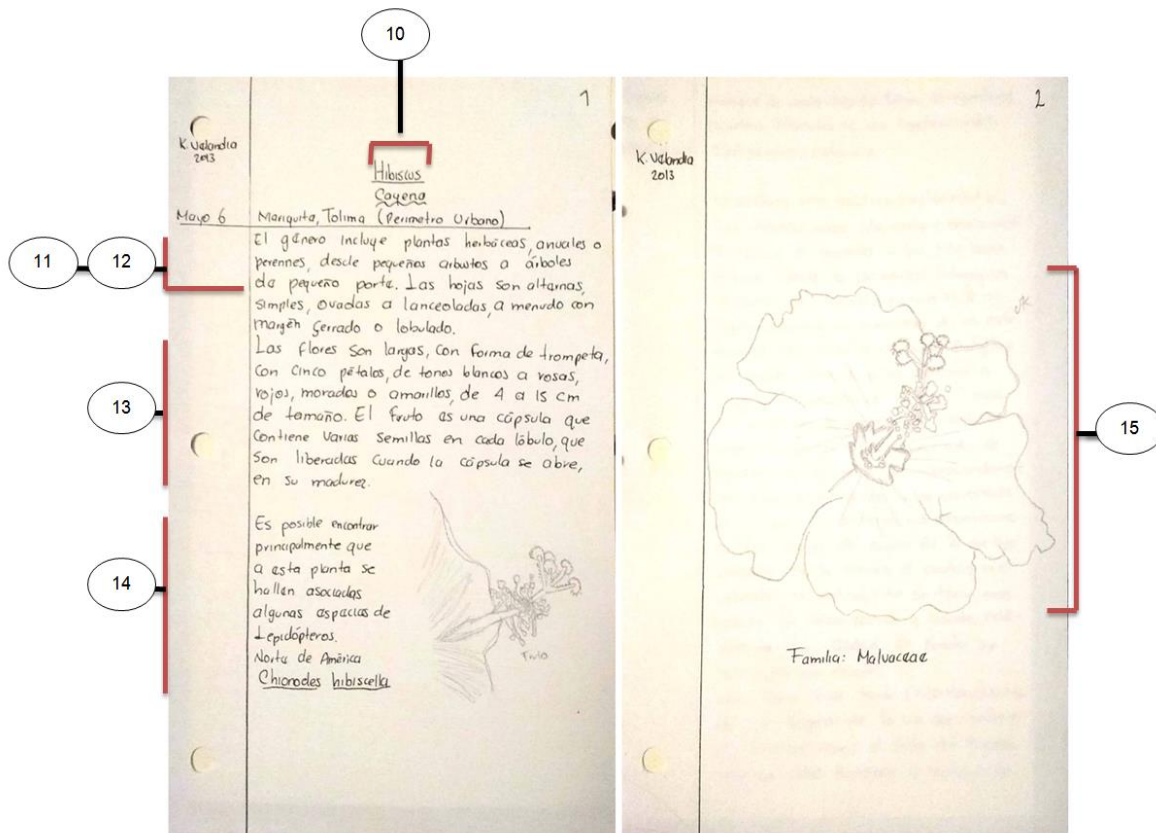 10
1
K. Velandia
2013
Hibiscus
Cayena
Mayo 6 Mariquita, Tolima (Perimetro Urbano)
11 12
El género incluye plantas herbáceas, anuales o
perennes, desde pequeños arbutos a árboles
de pequeño porte. Las hojas son alternas,
simples, ovadas a lanceoladas, a menudo con
margen serrado o lobulado.
13
Las flores son largas, con forma de trompeta,
con cinco pétalos, de tonos blancos a rosas,
rojos, morados o amarillos, de 4 a 15 cm
de tamaño. El fruto es una cápsula que
contiene varias semillas en cada lóbulo, que
son liberadas cuando la cápsula se abre,
en su madurez.
14
Es posible encontrar
principalmente que
a esta planta se
hallan asociadas
algunas especies de
Lepidópteros.
Norte de América
Chionodes hibiscella
2
K. Velandia
2013
15
Familia: Malvaceae